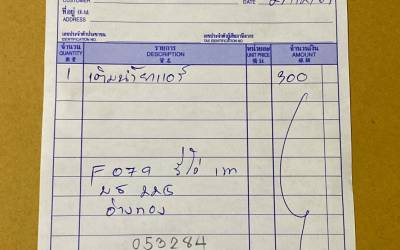 CUSTOMER
DATE
ที่อยู่
ADDRESS
เลขประจำตัวประชาชน
IDENTIFICATION NO.
เลขประจำตัวผู้เสียภาษีอากร
TAX IDENTIFICATION NO.
จำนวน รายการ หน่วยละ จำนวนเงิน
QUANTITY DESCRIPTION UNIT PRICE AMOUNT
1 เติมน้ำยาแอร์ 300
F 079
บธ 225
อ่างทอง
053284